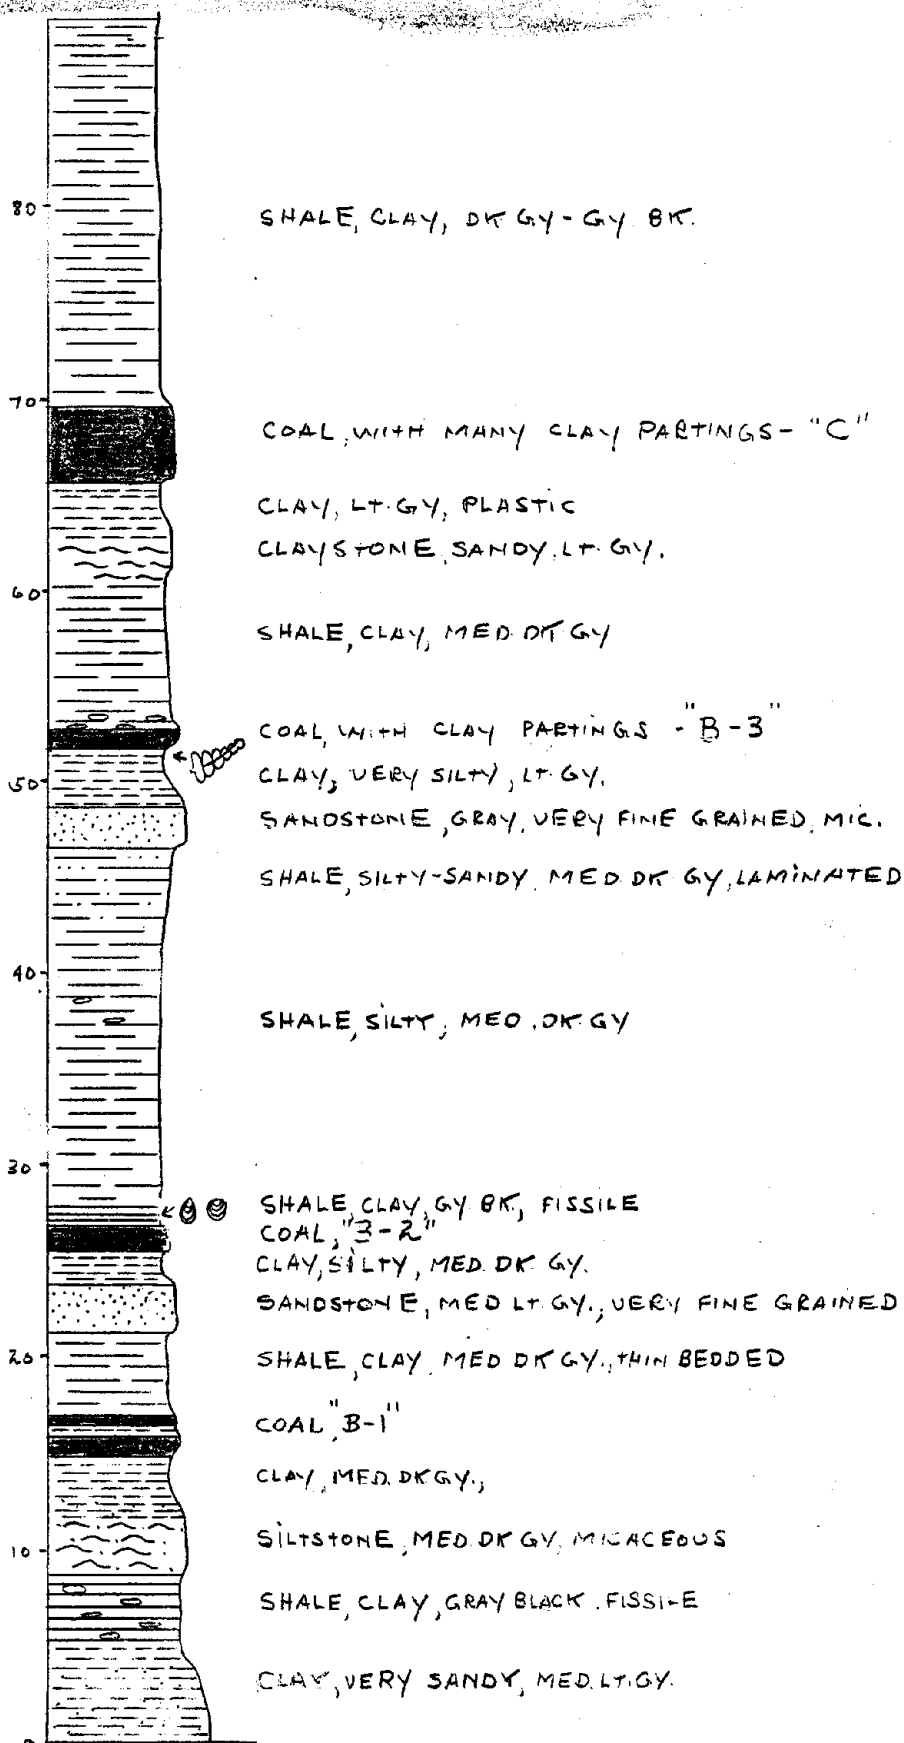 80
SHALE, CLAY, DK GY - GY BK.
70
COAL, WITH MANY CLAY PARTINGS - "C"
CLAY, LT. GY, PLASTIC
CLAYSTONE, SANDY, LT. GY.
60
SHALE, CLAY, MED. DK GY
COAL, WITH CLAY PARTINGS - "B-3"
50
CLAY, VERY SILTY, LT. GY.
SANDSTONE, GRAY, VERY FINE GRAINED, MIC.
SHALE, SILTY-SANDY, MED. DK GY, LAMINATED
40
SHALE, SILTY, MED. DK GY
30
SHALE, CLAY, GY BK, FISSILE
COAL, "B-2"
CLAY, SILTY, MED. DK GY.
SANDSTONE, MED LT. GY., VERY FINE GRAINED
20
SHALE, CLAY, MED DK GY., THIN BEDDED
COAL, "B-1"
CLAY, MED. DK GY.,
10
SILTSTONE, MED. DK GY, MICACEOUS
SHALE, CLAY, GRAY BLACK, FISSILE
CLAY, VERY SANDY, MED. LT. GY.
0